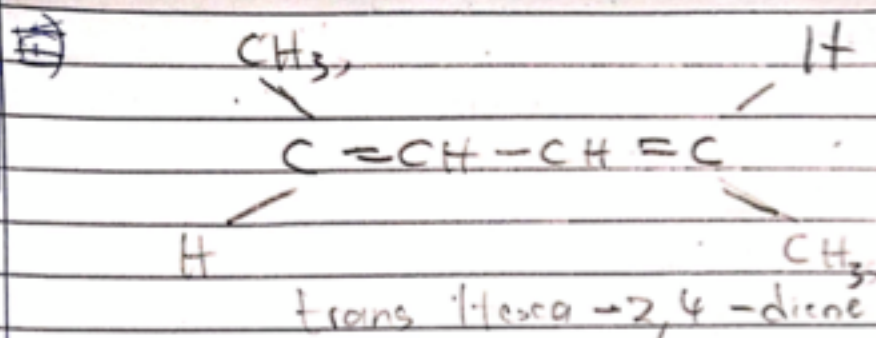 E)
CH3, H
C =CH -CH =C
H CH3
trans Hexa -2,4 -diene